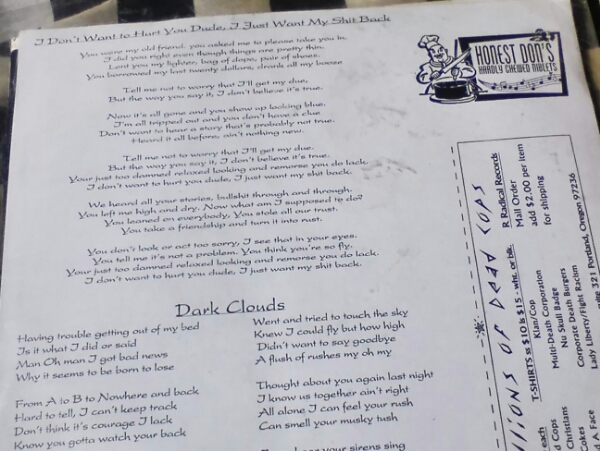 I Don't Want to Hurt You Dude, I Just Want My Shit Back
You were my old friend. you asked me to please take you in.
I did you right even though things are pretty thin.
Lent you my lighter, bag of dope, pair of shoes.
You borrowed my last twenty dollars, drank all my booze
Tell me not to worry that I'll get my due,
But the way you say it, I don't believe it's true.
Now it's all gone and you show up looking blue.
I'm all tripped out and you don't have a clue
Don't want to hear a story that's probably not true.
Heard it all before, ain't nothing new.
Tell me not to worry that I'll get my due.
But the way you say it, I don't believe it's true.
Your just too damned relaxed looking and remorse you do lack.
I don't want to hurt you dude, I just want my shit back.
We heard all your stories, bullshit through and through.
You left me high and dry. Now what am I supposed to do?
You leaned on everybody, You stole all our trust.
You take a friendship and turn it into rust.
You don't look or act too sorry, I see that in your eyes.
You tell me it's not a problem. You think you're so fly.
Your just too damned relaxed looking and remorse you do lack.
I don't want to hurt you dude, I just want my shit back.
HONEST DON'S
HARDLY CHEWED NIBLETS
Dark Clouds
Having trouble getting out of my bed
Is it what I did or said
Man Oh man I got bad news
Why it seems to be born to lose
From A to B to Nowhere and back
Hard to tell, I can't keep track
Don't think it's courage I lack
Know you gotta watch your back
Went and tried to touch the sky
Knew I could fly but how high
Didn't want to say goodbye
A flush of rushes my oh my
Thought about you again last night
I know us together ain't right
All alone I can feel your rush
Can smell your musky tush
your sirens sing
lions of Dead Cops
T-SHIRTS ss $10 ls $15 - wht. or blk.
Klan/Cop
Multi-Death Corporation
Nu Skull Badge
Corporate Death Burgers
Lady Liberty/Fight Racism
each
Cops
Christians
Cokes
d A Face
R Radical Records
Mail Order
add $2.00 per item
for shipping
321 Portland, Oregon 97236